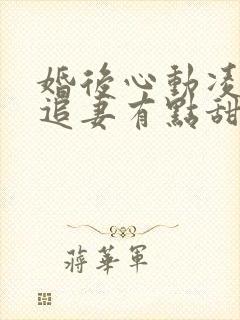 婚後心動凌
追妻有點甜
蔣華軍